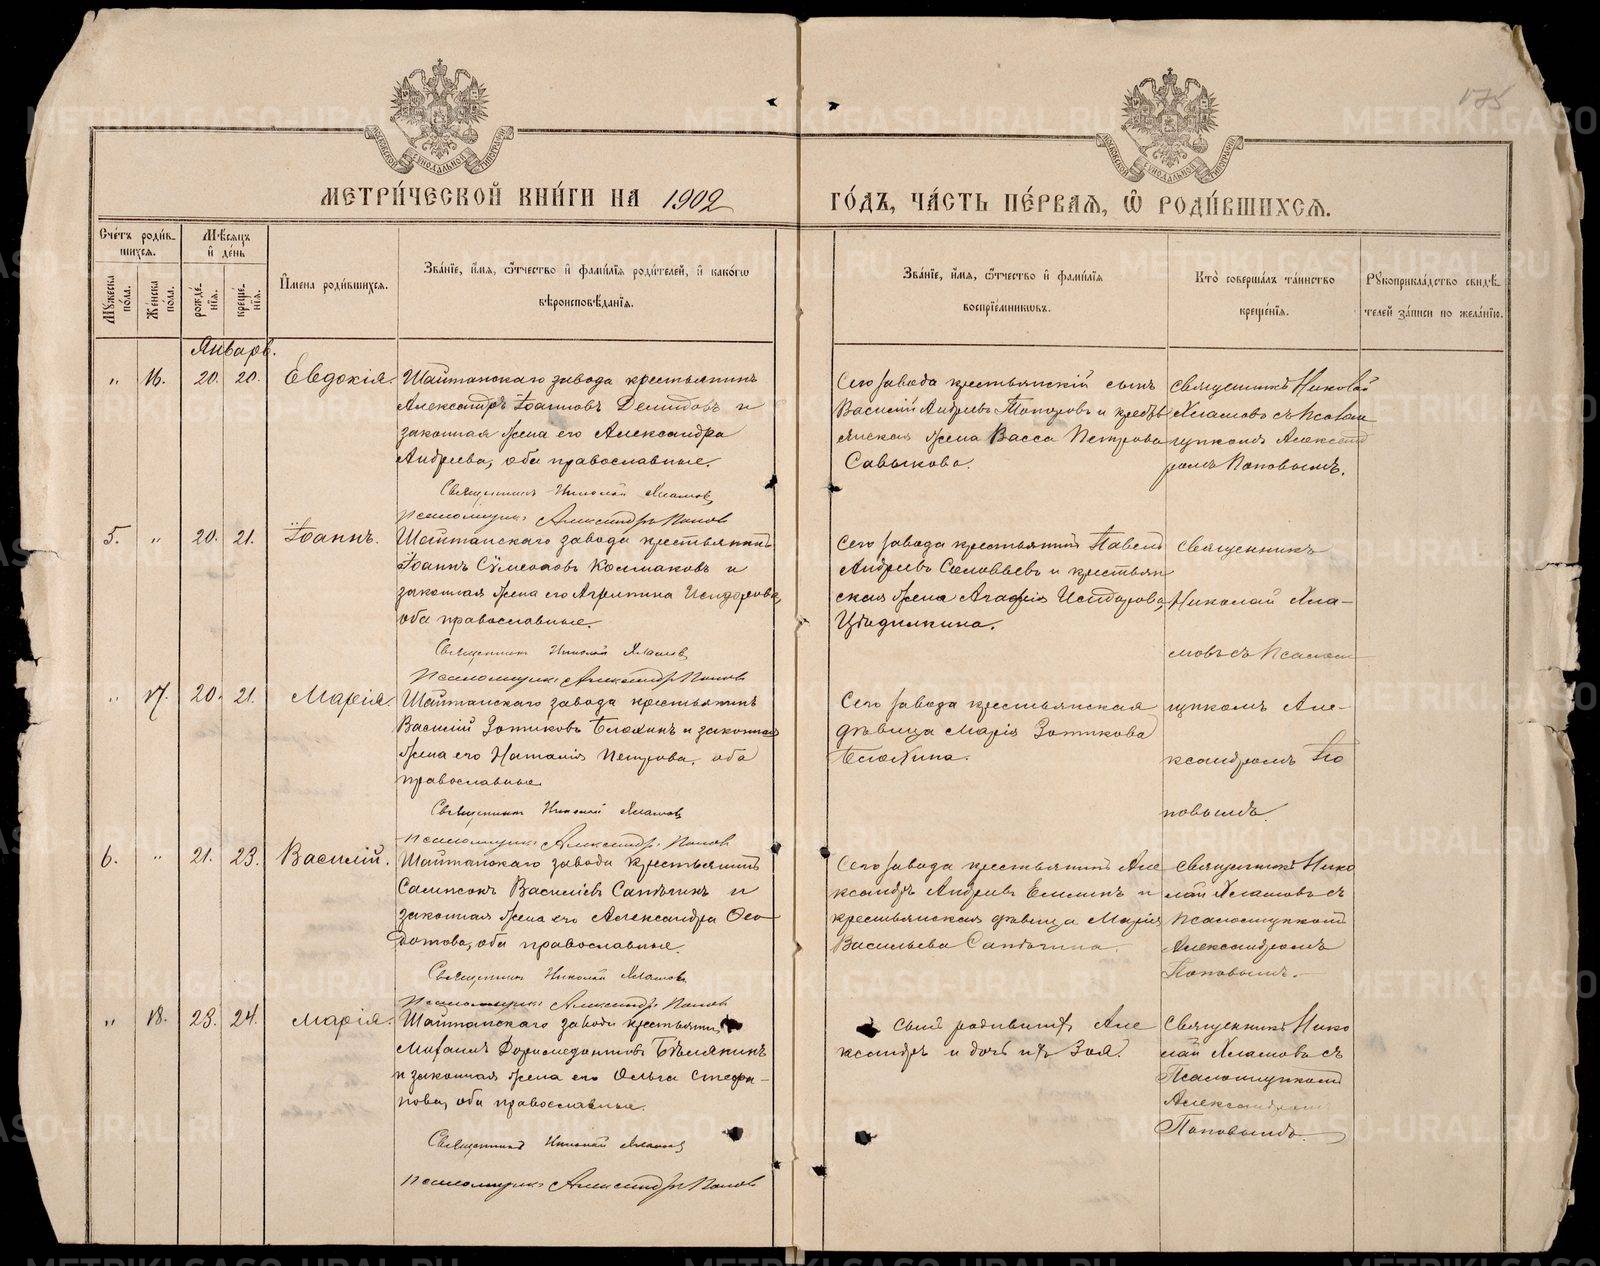 175
МЕТРИ́ЧЕСКОЙ КНИ́ГИ НА 1902
ГО́ДЪ, ЧА́СТЬ ПЕ́РВАЯ, Ѿ РОДИ́ВШИХСЯ.
Сче́тъ роди́в-
шихся.
Мꙋжеска по́ла.
Же́нска по́ла.
Мѣ́сяцъ
и҆ де́нь
рожде́-
нїя.
креще́-
нїя.
И҆мена роди́вшихся.
Зва́нїе, и҆́мя, ѻ҆́тчество и҆ фами́лїя роди́телей, и҆ како́гѡ
вѣроисповѣ́данїя.
Зва́нїе, и҆́мя, ѻ҆́тчество и҆ фами́лїя
воспрїе́мникѡвъ.
Кто̀ соверша́лъ та́инство
креще́нїя.
Рꙋкоприкла́дство свидѣ́-
телей за́писи по жела́нїю.
Январь.
„ 16. 20. 20. Евдокія.
Шайтанскаго завода крестьянинъ
Александръ Іоанновъ Демидовъ и
законная жена его Александра
Андреева, оба православные.
Священникъ Николай Хламовъ
Псаломщикъ Александръ Поповъ
Сего завода крестьянскій сынъ
Василій Андреевъ Топоровъ и кресть
янская жена Васса Петрова
Савыкова.
Священникъ Николай
Хламовъ съ Псалом
щикомъ Александ
ромъ Поповымъ.
5. „ 20. 21. Іоаннъ.
Шайтанскаго завода крестьянинъ
Іоаннъ Сѵмеоновъ Колмаковъ и
законная жена его Агрипина Исидорова,
оба православные.
Священникъ Николай Хламовъ
Псаломщикъ Александръ Поповъ
Сего завода крестьянинъ Павелъ
Андреевъ Соловьевъ и крестьян
ская жена Агафія Исидорова
Священникъ
Николай Хла-
мовъ съ Псалом
щикомъ Але-
ксандромъ По
повымъ.
„ 17. 20. 21. Марія.
Шайтанскаго завода крестьянинъ
Василій Зотиковъ Блохинъ и законная
жена его Наталія Петрова, оба
православные.
Священникъ Николай Хламовъ
Псаломщикъ Александръ Поповъ
Сего завода крестьянская
дѣвица Марія Зотикова
Блохина.
6. „ 21. 23. Василій.
Шайтанскаго завода крестьянинъ
Сампсонъ Василіевъ Сапѣгинъ и
законная жена его Александра Ѳео
дотова, оба православные.
Священникъ Николай Хламовъ
Псаломщикъ Александръ Поповъ
Сего завода крестьянинъ Але
ксандръ Андреевъ Елькинъ и
крестьянская дѣвица Марія
Васильева Сапѣгина.
Священникъ Нико
лай Хламовъ съ
Псаломщикомъ
Александромъ
Поповымъ.
„ 18. 23. 24. Марія.
Шайтанскаго завода крестьянинъ
Михаилъ Доримедонтовъ Бѣлянкинъ
и законная жена его Ольга Стефа-
нова, оба православные.
Священникъ Николай Хламовъ
Псаломщикъ Александръ Поповъ
Сынъ родившихъ Але
ксандръ и дочь ихъ Зоя.
Священникъ Нико
лай Хламовъ съ
Псаломщикомъ
Александромъ
Поповымъ.
METRIKI.GASO-URAL.RU